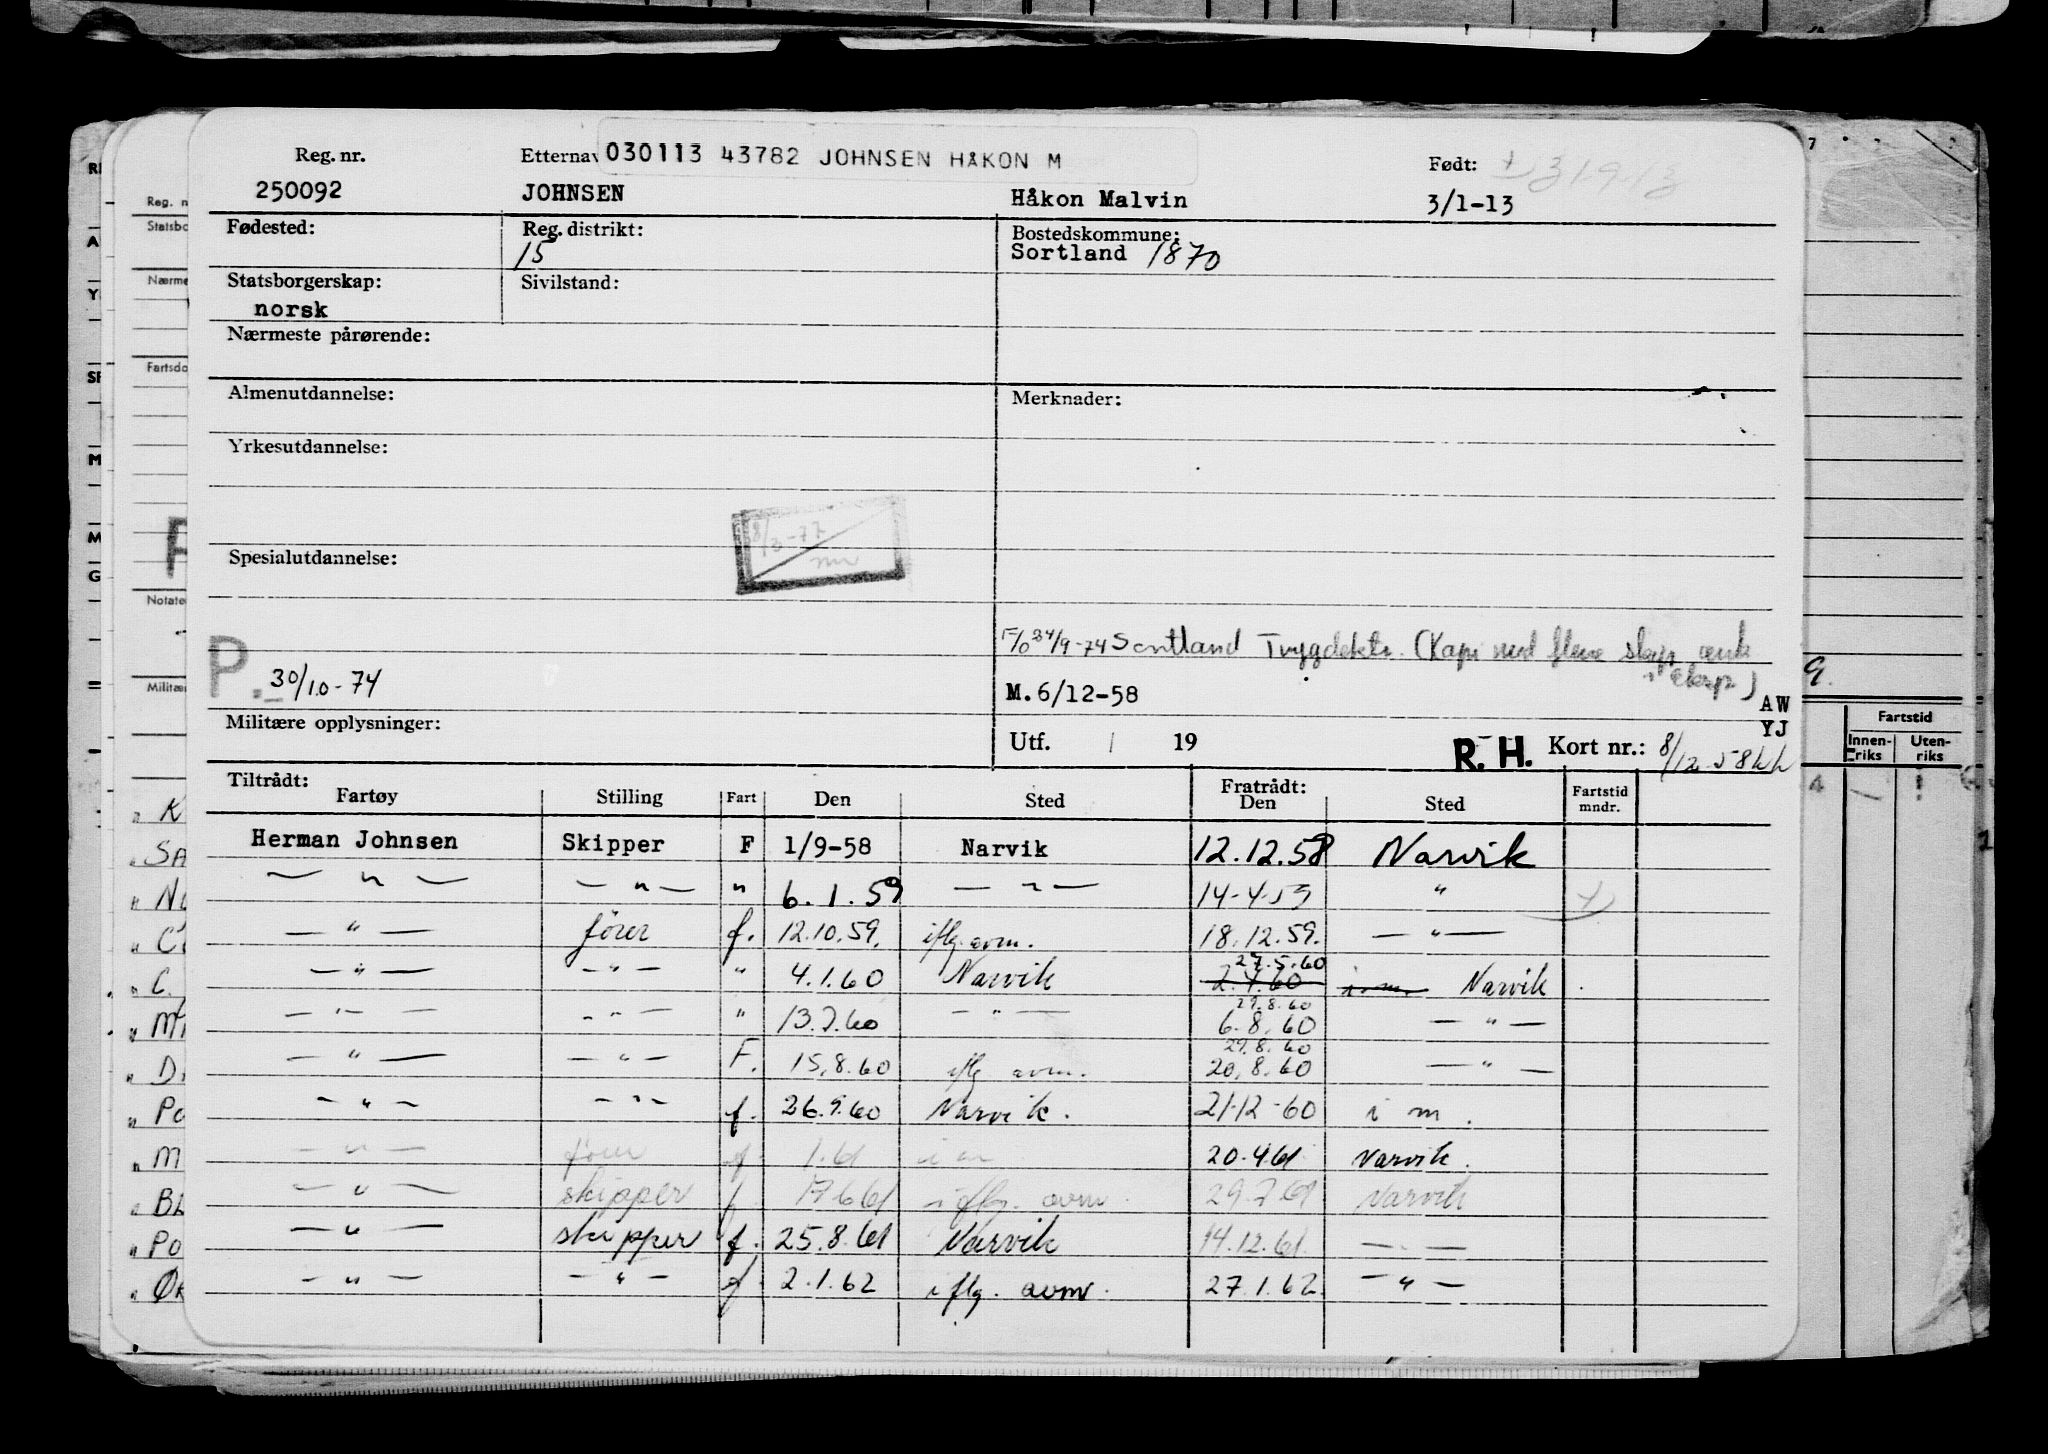 Reg. nr.
Etternav
030113 43782 JOHNSEN HÅKON M
Født:
250092
JOHNSEN
Håkon Malvin
3/1-13
Fødested:
Reg. distrikt:
15
Bostedskommune:
Sortland 1870
Statsborgerskap:
norsk
Sivilstand:
Nærmeste pårørende:
Almenutdannelse:
Merknader:
Yrkesutdannelse:
8/3-77
Spesialutdannelse:
F/o 24/9-74 Sortland Trygdekts. (Kapi med flere skip
P. 30/10-74
M. 6/12-58
AW
YJ
Militære opplysninger:
Utf. / 19
R. H. Kort nr.: 8/12-58
Tiltrådt:
Fratrådt:
Fartøy Stilling Fart Den Sted Den Sted Fartstid mndr.
Herman Johnsen Skipper F 1/9-58 Narvik 12.12.58 Narvik
— " — — " — " 6.1.59 — " — 14-4-59 "
— " — fører f. 12.10.59. iflg. avm. 18.12.59. — " —
27.5.60
— " — — " — " 4.1.60 Narvik 2.4.60 i.m. Narvik
29.8.60
— " — — " — " 13.7.60 — " — 6.8.60 — " —
29.8.60
— " — — " — F. 15.8.60 iflg avm. 20.8.60 — " —
— " — — " — f. 26.9.60 Narvik. 21-12-60 i m.
— " — fører f 1.61 i m 20.4.61 Narvik.
— " — skipper f 17.6.61 iflg. avm. 29.7.61 Narvik
— " — skipper f. 25.8.61 Narvik 14.12.61. — " —
— " — — " — f 2.1.62 iflg. avm. 27.1.62. — " —
Reg. n
Statsbo
Nærme
Fartsdo
Notate
Militær
Fartstid
Innen-riks
Uten-riks